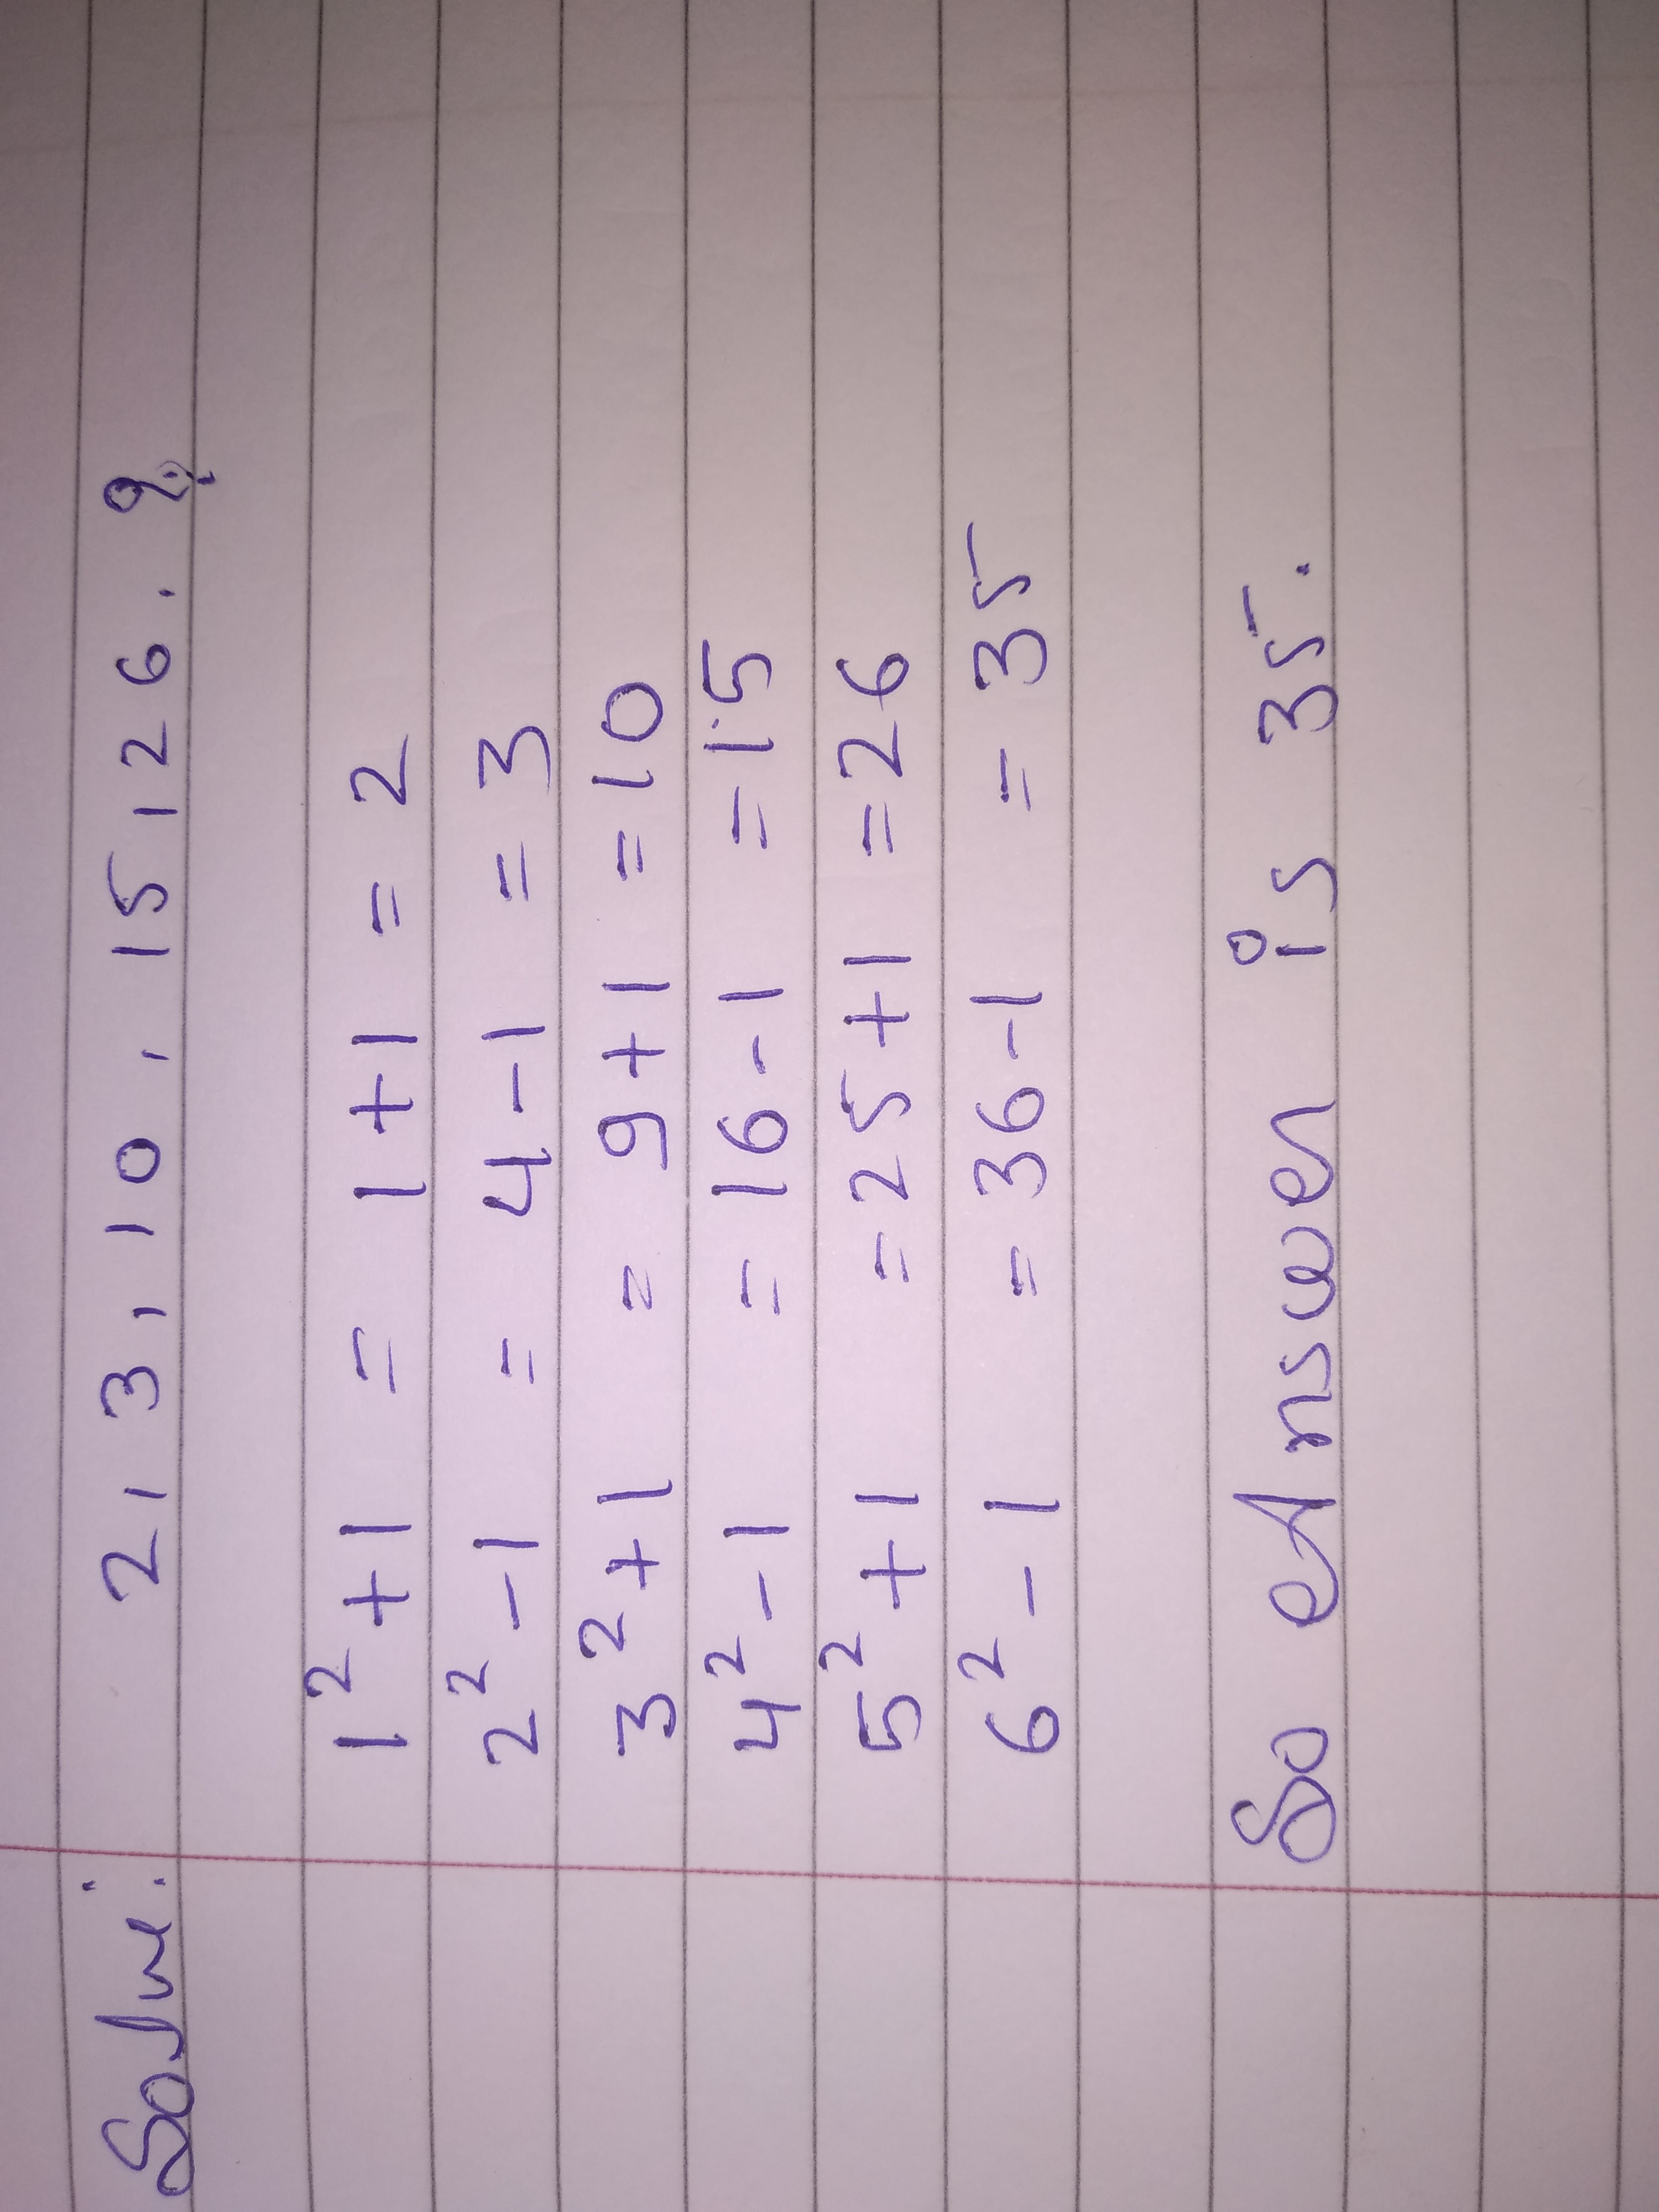 Solve: 2, 3, 10, 15, 26, ?
1² + 1 = 1 + 1 = 2
2² - 1 = 4 - 1 = 3
3² + 1 = 9 + 1 = 10
4² - 1 = 16 - 1 = 15
5² + 1 = 25 + 1 = 26
6² - 1 = 36 - 1 = 35
So Answer is 35.